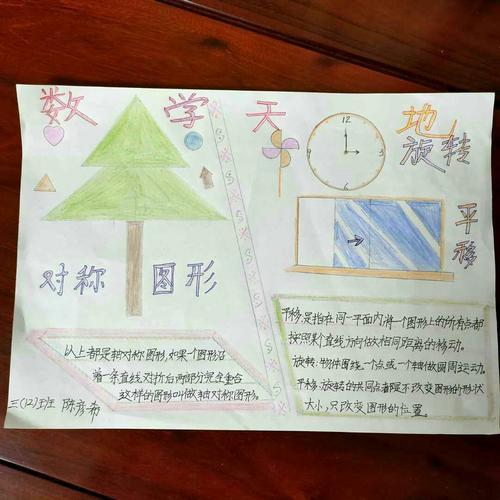 数学天地
12
3
6
9
旋转
平移
对称图形
以上都是轴对称图形,如果一个图形沿
着一条直线对折后两部分完全重合
这样的图形叫做轴对称图形。
三(12)班 陈彦希
平移:是指在同一平面内,将一个图形上的所有点都
按照某个直线方向做相同距离的移动。
旋转:物体围绕一个点或一个轴做圆周运动。
平移.旋转的共同点都是不改变图形的形状
大小,只改变图形的位置。